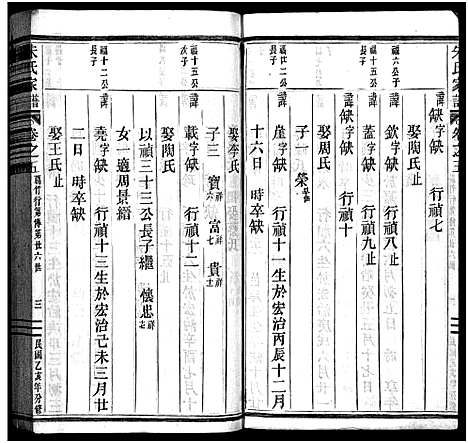 朱氏家譜 卷之五
諱缺字缺 行禎七
福六公子
諱欽字缺 行禎八止
諱蓋字缺 行禎九止
福十五公長子
諱缺字缺 行禎十
娶周氏
子一 榮
福廿二公長子
諱崖字缺 行禎十一生於宏治丙辰十二月
十六日 時卒缺
娶李氏
子三 寶 富 貴
福十五公次子
諱 字缺 行禎十二
娶陶氏
以禎三十三公長子繼 懷忠
女一適周景繒
福十二公長子
諱堯字缺 行禎十三生於宏治己未三月廿
日 時卒缺
娶王氏止
朱氏家譜 卷之五 行第傳第廿六世 三 民國乙亥年分修